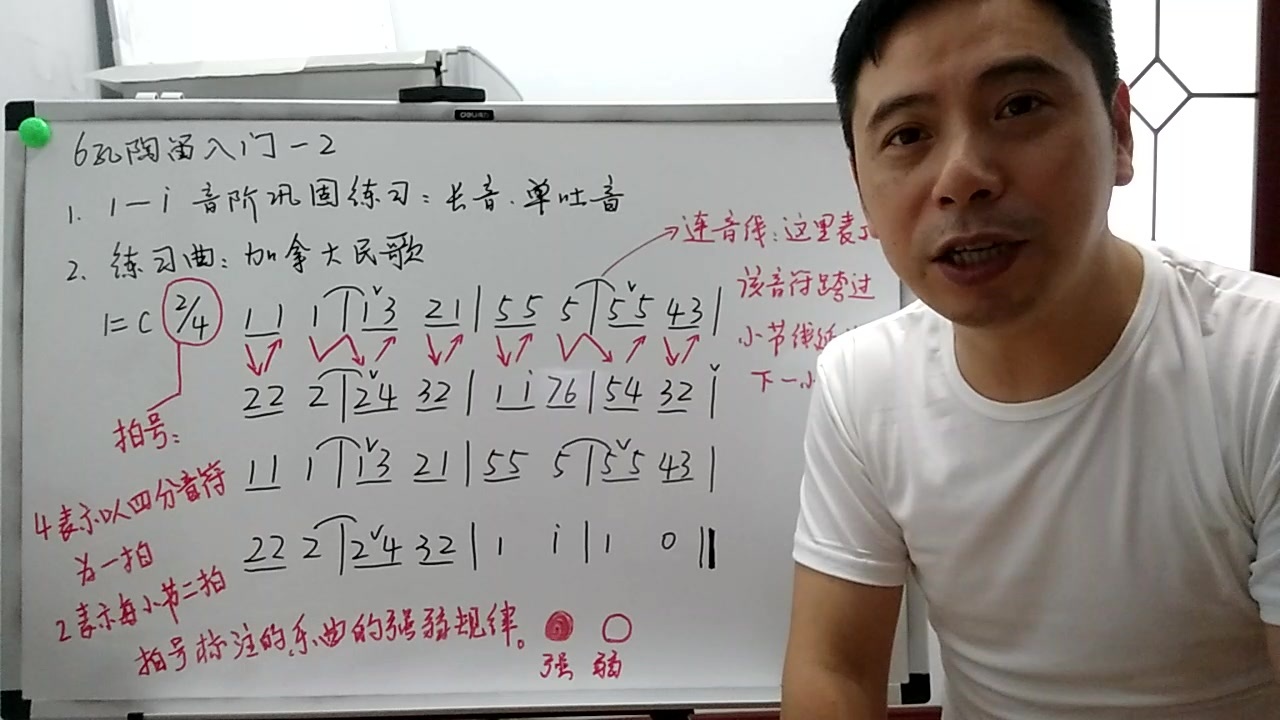 deli得力
6孔陶笛入门-2
1. 1-i 音阶巩固练习:长音.单吐音
2. 练习曲:加拿大民歌
→连音线:这里表
该音符跨过
小节线
下一小
1=C 2/4 11 1|1ˇ3 21|55 5|5ˇ5 43|
22 2|2ˇ4 32|1i 76|54 32 iˇ
11 1|1ˇ3 21|55 5|5ˇ5 43|
22 2|2ˇ4 32|1 i|1 0‖
拍号:
4表示以四分音符
为一拍
2表示每小节二拍
拍号标注的乐曲的强弱规律。
强 弱